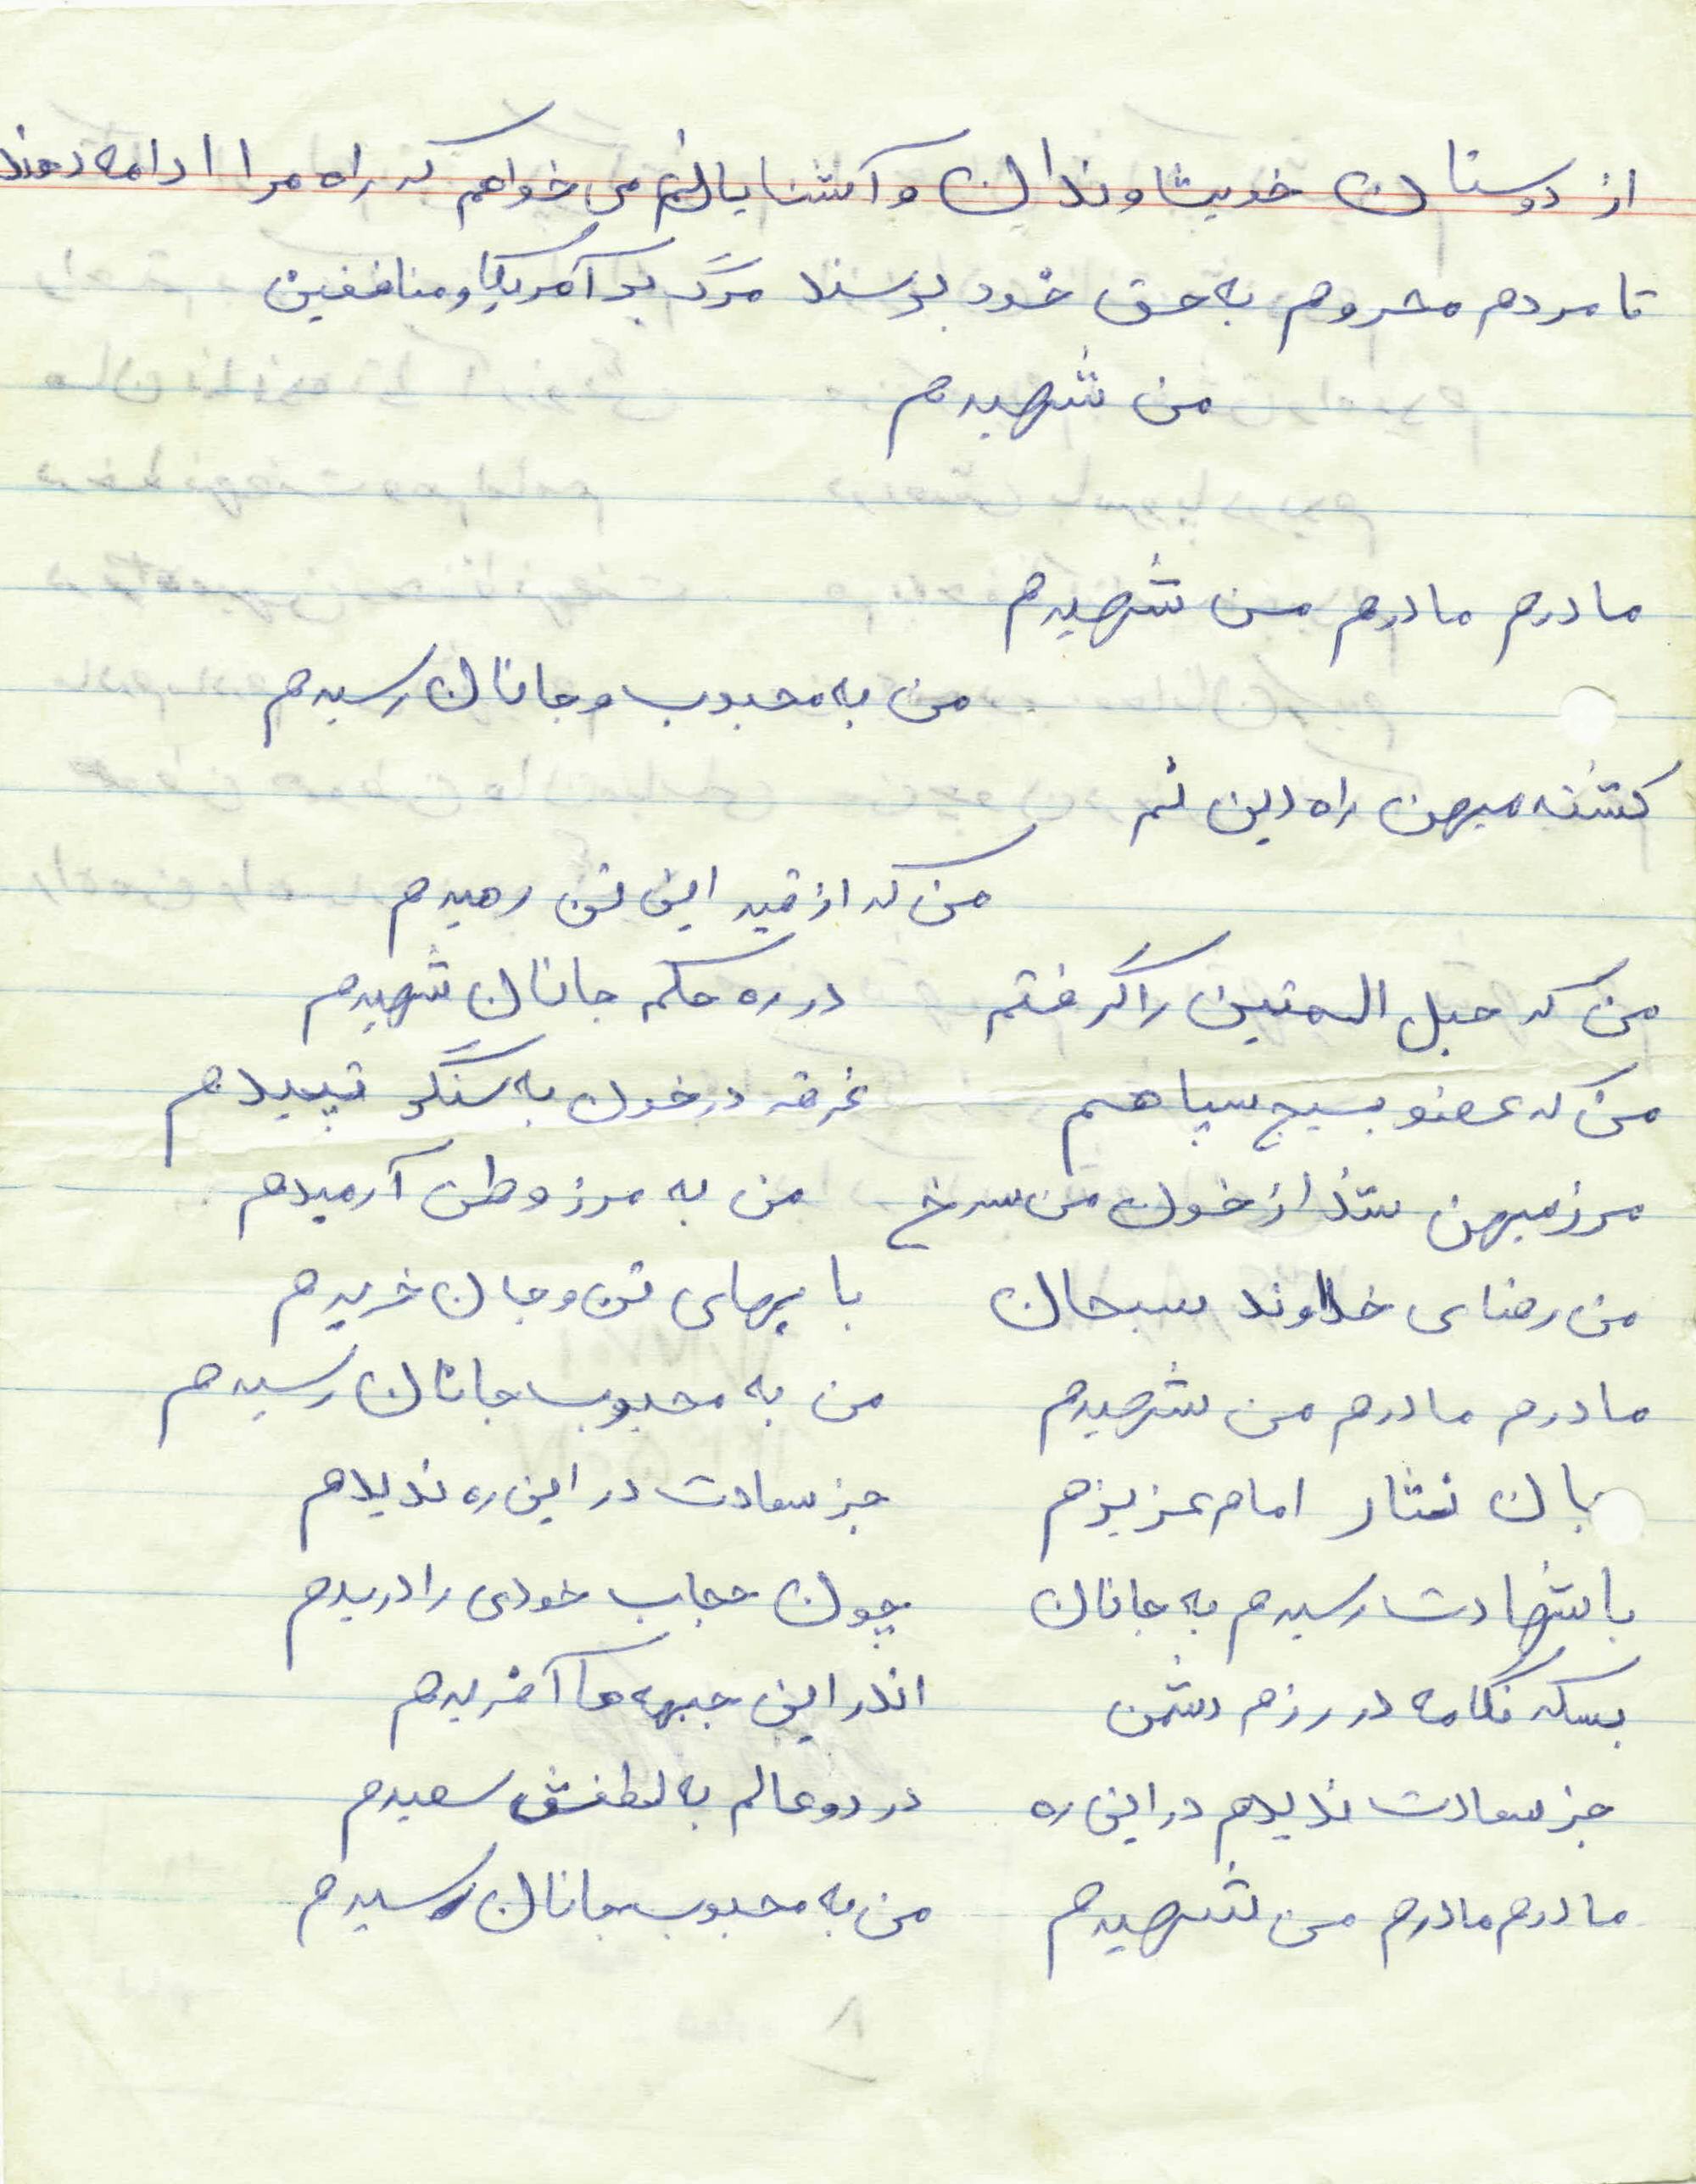 از دوستان خویشاوندان و آشنایانم می خواهم که راه مرا ادامه دهند
تا مردم محروم به حق خود برسند مرگ بر آمریکا و منافقین
من شهیدم
مادرم مادرم من شهیدم
من به محبوب و جانان رسیدم
کشته میهن راه دین نم
من که از قید این تن رهیدم
من که حبل المتین را گرفتم در ره حکم جانان شهیدم
من که عضو بسیج سپاهم غرقه در خون به سنگر تپیدم
مرز میهن شد از خون من سرخ من به مرز وطن آرمیدم
من رضای خداوند سبحان با بهای تن و جان خریدم
مادرم مادرم من شهیدم من به محبوب جانان رسیدم
جان نثار امام عزیزم جز سعادت در این ره ندیدم
با شهادت رسیدم به جانان چون حجاب خودی را دریدم
بسکه در رزم دشمن اندر این جبهه ها آفریدم
جز سعادت ندیدم در این ره در دو عالم به لطفش سعیدم
مادرم مادرم من شهیدم من به محبوب جانان رسیدم